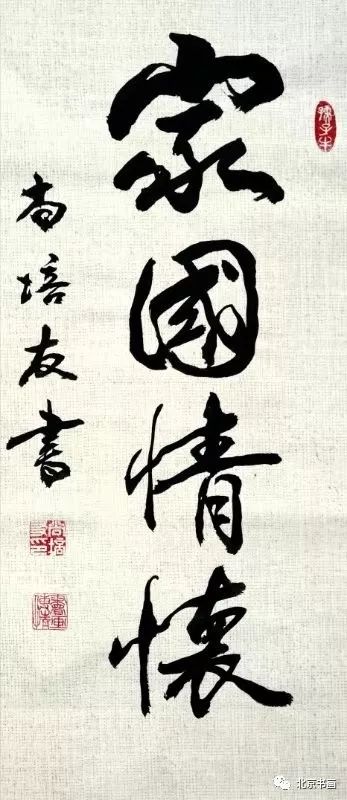 孺子牛
家國情懷
尚培友書
北京书画